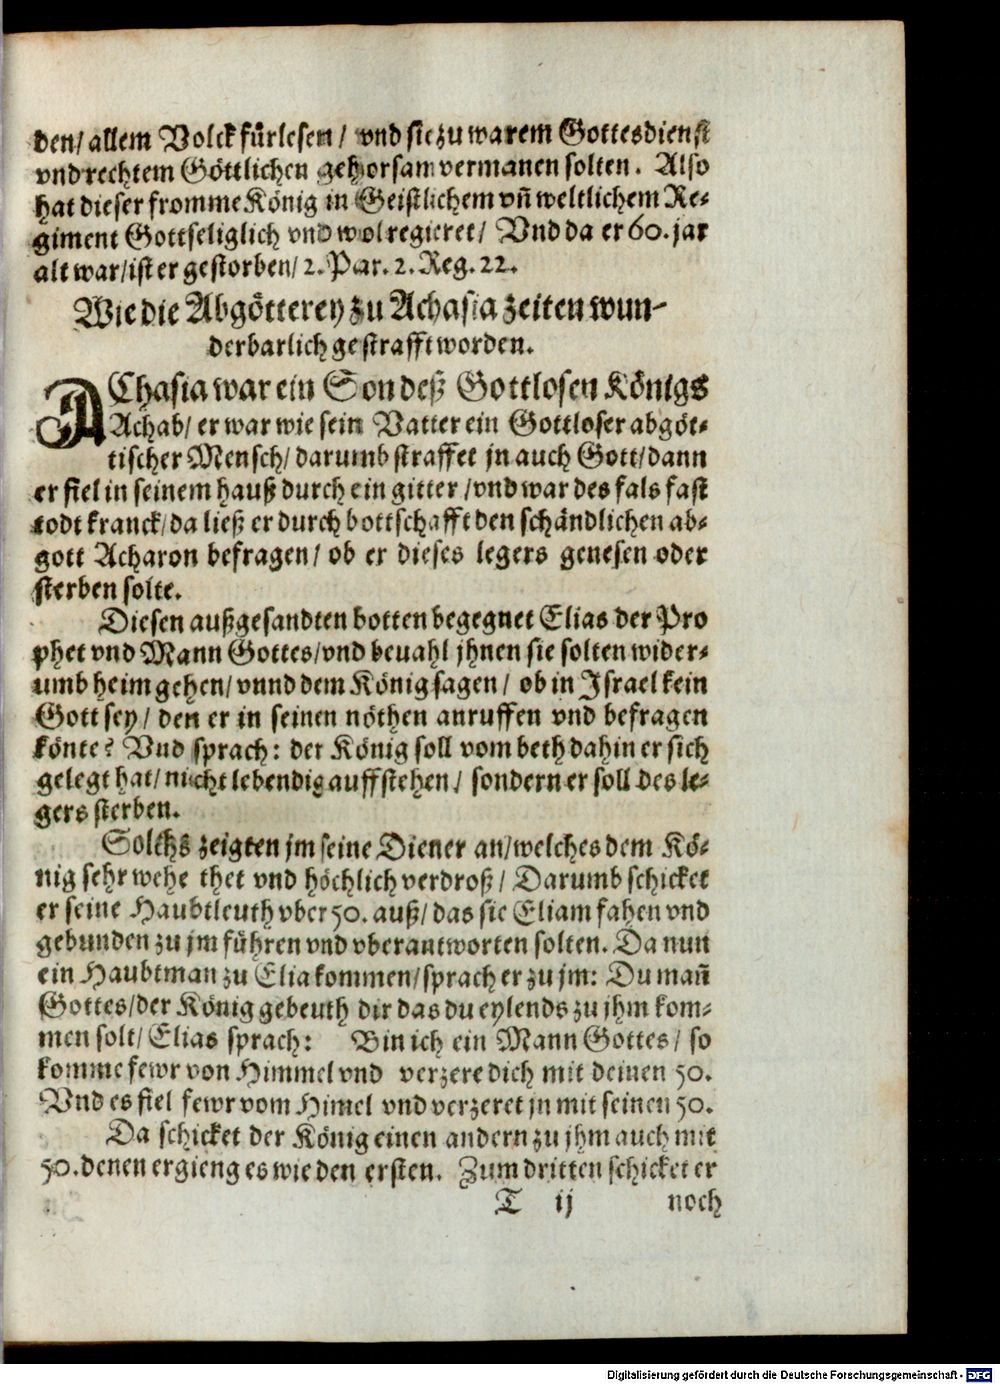 den/ allem Volck fürlesen/ vnd sie zu warem Gottesdienst
vnd rechtem Göttlichen gehorsam vermanen solten. Also
hat dieser fromme König in Geistlichem vñ weltlichem Re-
giment Gottseliglich vnd wol regieret/ Vnd da er 60. jar
alt war/ ist er gestorben/ 2. Par. 2. Reg. 22.
Wie die Abgötterey zu Achasia zeiten wun-
derbarlich gestrafft worden.
AChasia war ein Son deß Gottlosen Königs
Achab/ er war wie sein Vatter ein Gottloser abgöt-
tischer Mensch/ darumb straffet jn auch Gott/ dann
er fiel in seinem hauß durch ein gitter/ vnd war des fals fast
todt kranck/ da ließ er durch bottschafft den schändlichen ab-
gott Acharon befragen/ ob er dieses legers genesen oder
sterben solte.
Diesen außgesandten botten begegnet Elias der Pro
phet vnd Mann Gottes/ vnd beuahl jhnen sie solten wider-
umb heim gehen/ vnnd dem König sagen/ ob in Israel kein
Gott sey/ den er in seinen nöthen anruffen vnd befragen
könte? Vnd sprach: der König soll vom beth dahin er sich
gelegt hat/ nicht lebendig auffstehen/ sondern er soll des le-
gers sterben.
Solchs zeigten jm seine Diener an/ welches dem Kö-
nig sehr wehe thet vnd höchlich verdroß/ Darumb schicket
er seine Haubtleuth vber 50. auß/ das sie Eliam fahen vnd
gebunden zu jm führen vnd vberantworten solten. Da nun
ein Haubtman zu Elia kommen/ sprach er zu jm: Du mañ
Gottes/ der König gebeuth dir das du eylends zu jhm kom-
men solt/ Elias sprach: Bin ich ein Mann Gottes/ so
komme fewr von Himmel vnd verzere dich mit deinen 50.
Vnd es fiel fewr vom Himel vnd verzeret jn mit seinen 50.
Da schicket der König einen andern zu jhm auch mit
50. denen ergieng es wie den ersten. Zum dritten schicket er
T ij noch
Digitalisierung gefördert durch die Deutsche Forschungsgemeinschaft - DFG